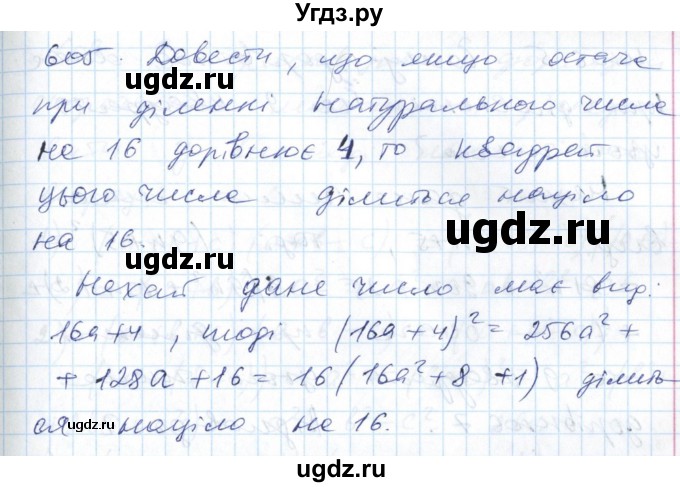 Угдз.ру
605. Довести, що якщо остача
ugdz.ru ugdz.ru
при діленні натурального числа
на 16 дорівнює 4, то квадрат
цього числа ділиться націло
ugdz.ru
на 16.
ugdz.ru
Нехай дане число має вид:
16a+4, тоді (16a+4)² = 256a² +
+ 128a + 16 = 16(16a² + 8 +1) ділить-
ugdz.ru ugdz.ru
ся націло на 16.
ugdz.ru